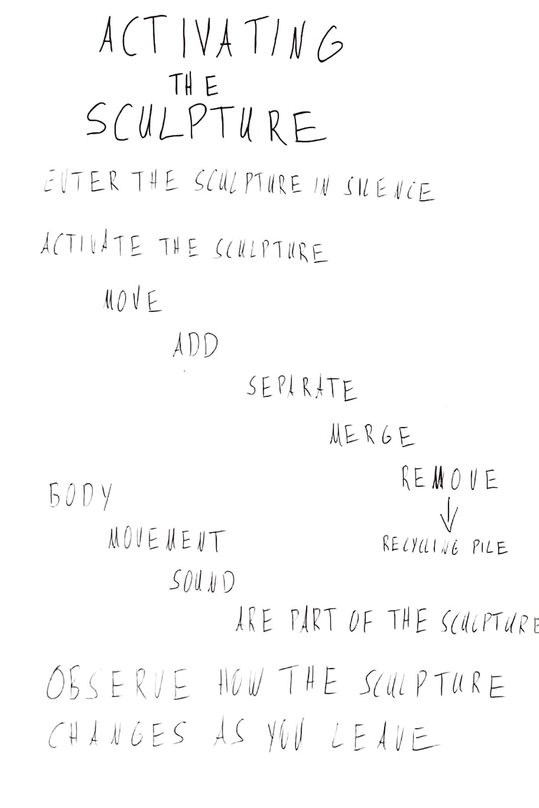 ACTIVATING
THE
SCULPTURE
ENTER THE SCULPTURE IN SILENCE
ACTIVATE THE SCULPTURE
MOVE
ADD
SEPARATE
MERGE
REMOVE
BODY
MOVEMENT
RECYCLING PILE
SOUND
ARE PART OF THE SCULPTURE
OBSERVE HOW THE SCULPTURE
CHANGES AS YOU LEAVE